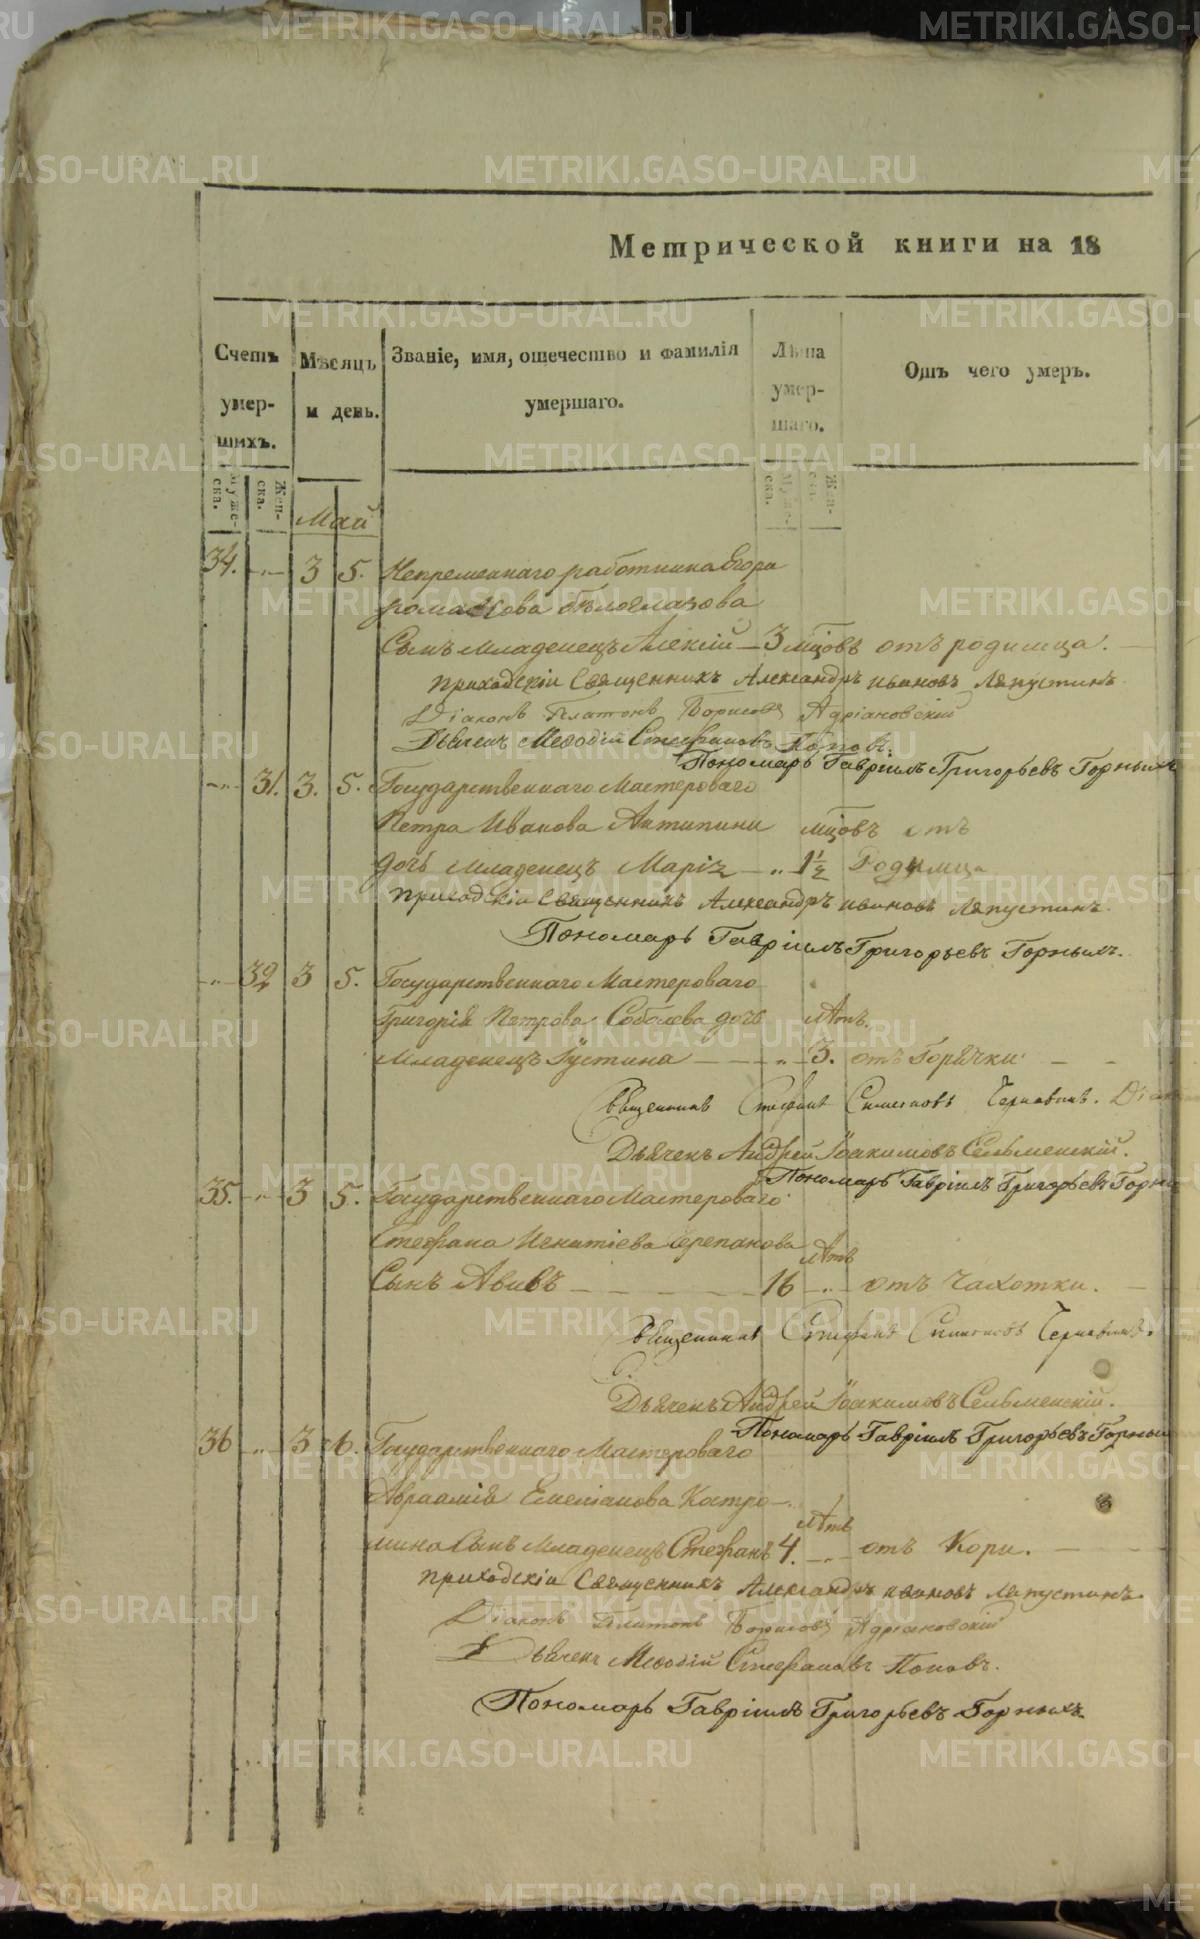 Метрической книги на 18
Счетъ умер-шихъ.
Муже-ска.
Жен-ска.
Мѣсяцъ и день.
Званіе, имя, отечество и фамилія умершаго.
Лѣта умер-шаго.
Муже-ска.
Жен-ска.
Отъ чего умеръ.
Май
34. -„- 3 5. Непременнаго работника Егора
романова Бѣлоглазова
Сынъ младенецъ Алексій 3 мцовъ отъ родимца.
приходскій Священникъ Александръ ивановъ Ляпустинъ
Діаконъ Платонъ Борисовъ Адріановскій
Дьячекъ Мефодій Стефановъ Поповъ.
Пономарь Гавріилъ Григорьевъ Горныхъ
-„- 31. 3. 5. Государственнаго Мастероваго
Петра Иванова Антипина мцовъ отъ
дочь младенецъ Марія „ 1 1/2 Родимца
приходскій Священникъ Александръ ивановъ Ляпустинъ.
Пономарь Гавріилъ Григорьевъ Горныхъ.
-„- 32 3 5. Государственнаго Мастероваго
Григорія Петрова Соболева дочь лѣтъ.
Младенецъ Іустина „ 3. отъ Горячки
Священникъ Стефанъ Симеоновъ Чернавинъ.
Дьячекъ Андрей Іоакимовъ Сельменскій.
Пономарь Гавріилъ Григорьевъ Горны
35. -„- 3 5. Государственнаго Мастероваго
Стефана Игнатіева Черепанова лѣтъ
Сынъ Авивъ 16 -„- отъ Чахотки.
Священникъ Стефанъ Симеоновъ Чернавинъ.
Дьячекъ Андрей Іоакимовъ Сельменскій.
Пономарь Гавріилъ Григорьевъ Горныхъ
36 -„- 3 6. Государственнаго Мастероваго
Авраамія Емеліанова Костро-
мина Сынъ младенецъ Стефанъ 4. лѣтъ -„- отъ Кори.
приходскій Священникъ Александръ ивановъ Ляпустинъ
Діаконъ Платонъ Борисовъ Адріановскій
Дьячекъ Мефодій Стефановъ Поповъ.
Пономарь Гавріилъ Григорьевъ Горныхъ.
METRIKI.GASO-URAL.RU